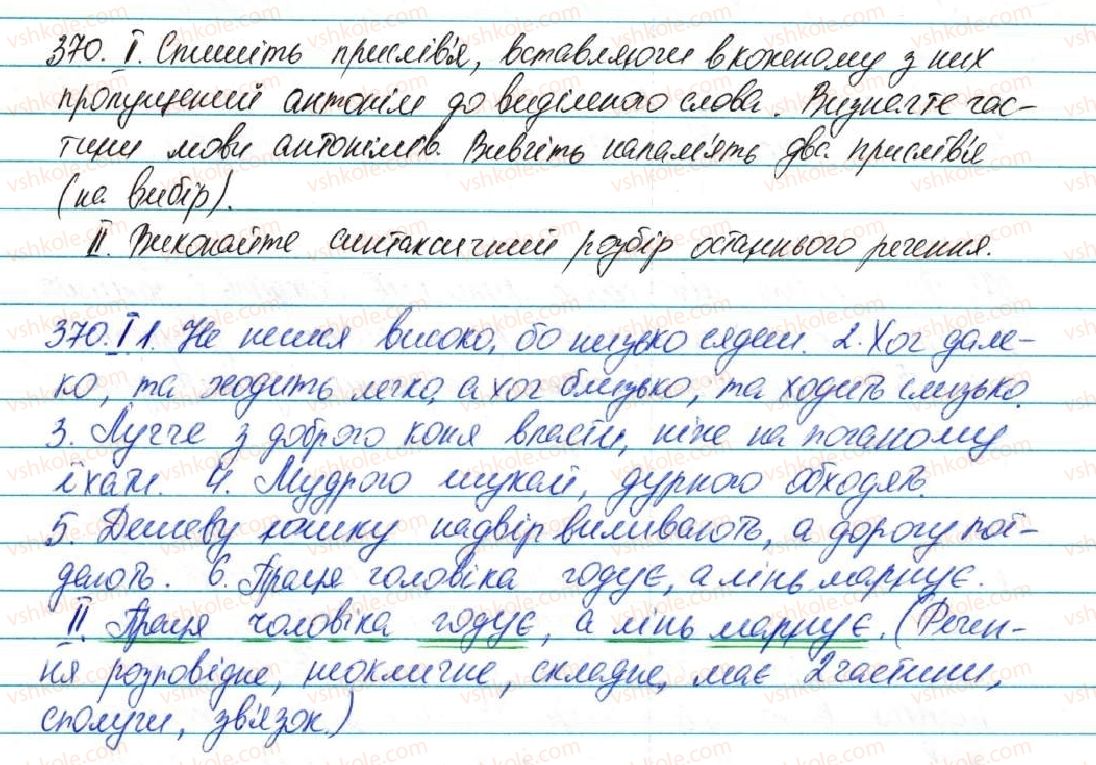 370. І. Спишіть прислів'я, вставляючи в кожному з них
пропущений антонім до виділеного слова. Визначте час-
тини мови антонімів. Вивчіть напам'ять два прислів'я
(на вибір).
ІІ. Виконайте синтаксичний розбір останнього речення.
370. І 1. Не несися високо, бо низько сядеш. 2. Хоч дале-
ко, та ходить легко, а хоч близько, та ходить слизько.
3. Лучче з доброго коня впасти, ніж на поганому
їхати. 4. Мудрого шукай, дурного обходять.
5. Дешеву юшку надвір виливають, а дорогу пої-
дають. 6. Праця чоловіка годує, а лінь марнує.
ІІ. Праця чоловіка годує, а лінь марнує. (Речен-
ня розповідне, неоклично, складне, має 2 частини,
сполучн, зв'язок.)